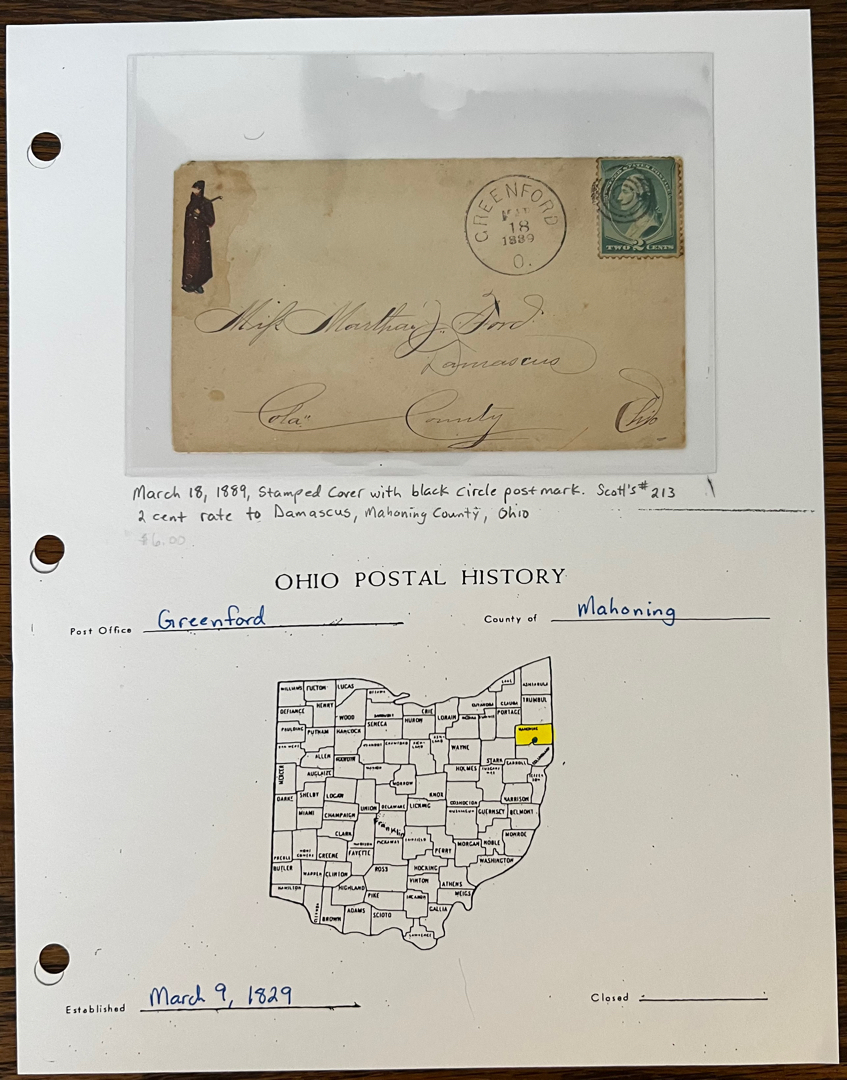 GREENFORD
MAR
18
1889
O.
TWO 2 CENTS
Miss Martha J. Ford
Damascus
Cola" County Ohio
March 18, 1889, Stamped Cover with black circle postmark. Scott's #213
2 cent rate to Damascus, Mahoning County, Ohio
$6.00
OHIO POSTAL HISTORY
Post Office Greenford County of Mahoning
LAKE
ASHTABULA
WILLIAMS FULTON LUCAS
OTTAWA
CUYAHOGA GEAUGA TRUMBUL
HENRY
DEFIANCE
WOOD
ERIE
LORAIN
PORTAGE
SENECA HURON
MAHONING
PAULDING PUTNAM HANCOCK
WAYNE
ALLEN
STARK CARROLL
MERCER
AUGLAIZE
HOLMES
MORROW
DARKE SHELBY LOGAN
KNOX
COSHOCTON
HARRISON
UNION DELAWARE LICKING
MIAMI CHAMPAIGN
GUERNSEY BELMONT
Franklin
CLARK
MONROE
MORGAN NOBLE
PERRY
PREBLE
GREENE FAYETTE
WASHINGTON
BUTLER
ROSS
HOCKING
CLINTON
VINTON ATHENS
HAMILTON
HIGHLAND
PIKE
MEIGS
ADAMS
GALLIA
BROWN
SCIOTO
LAWRENCE
Established March 9, 1829 Closed